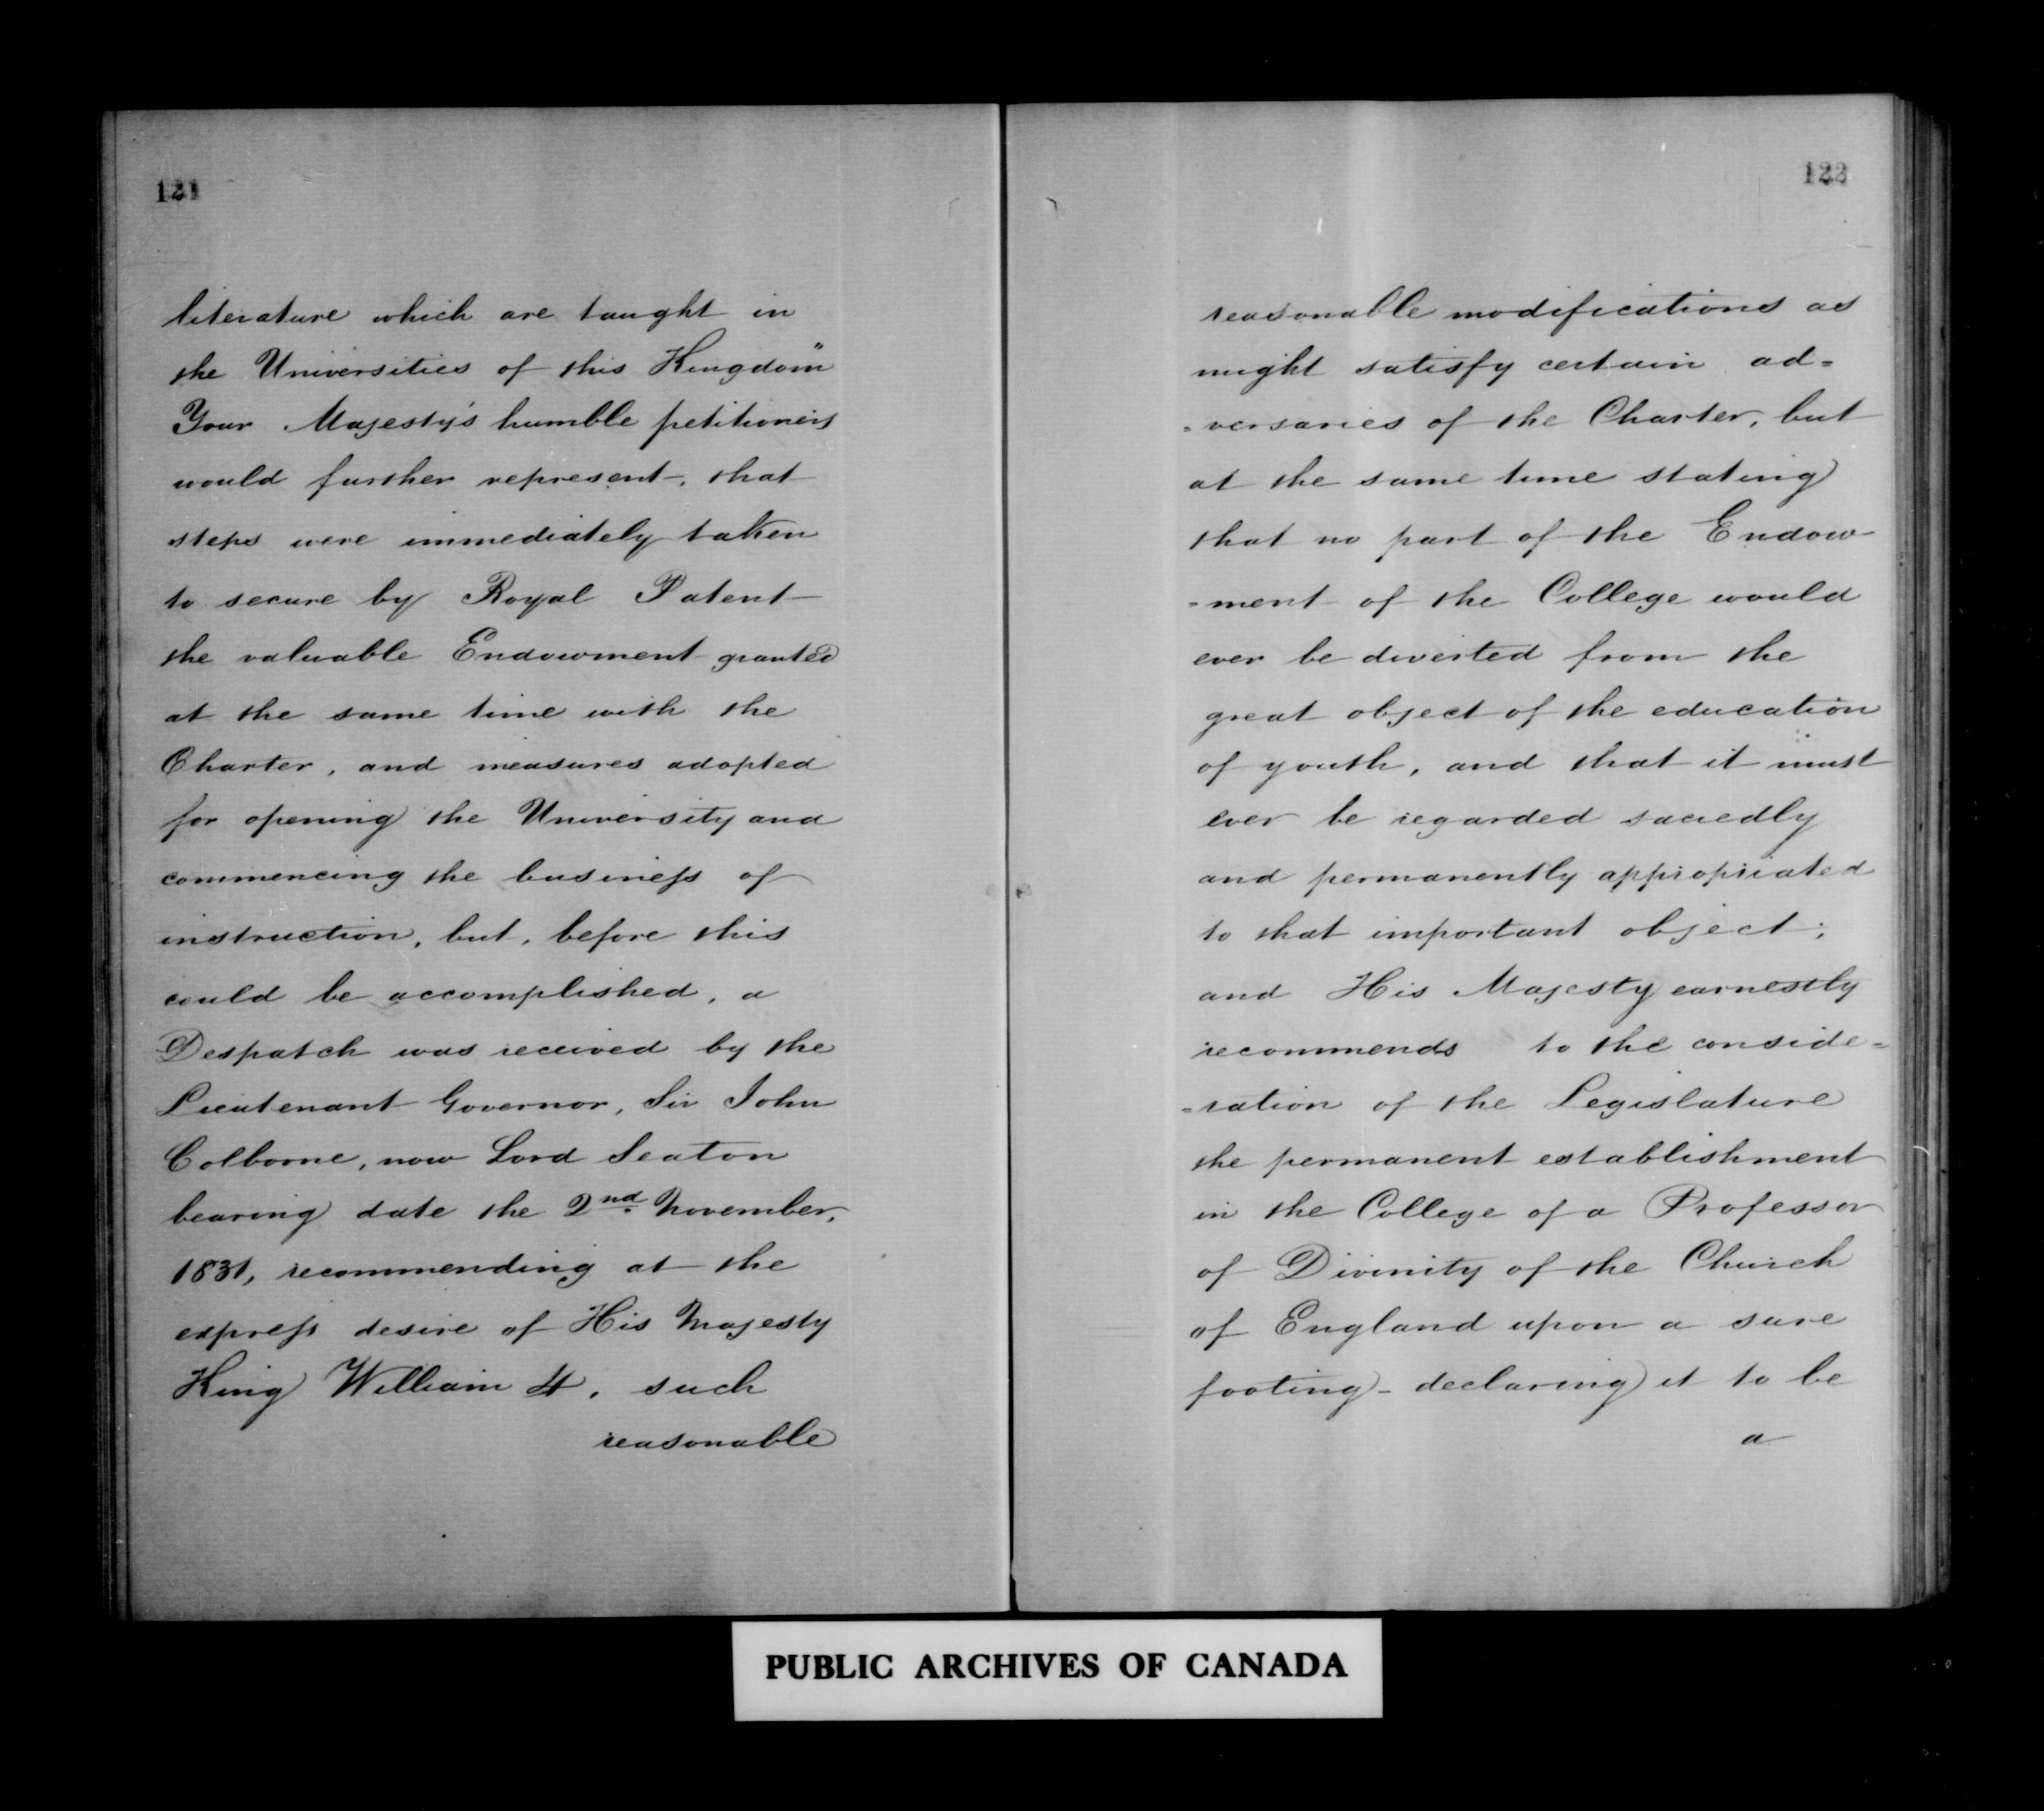 121
literature which are taught in
the Universities of this Kingdom"
Your Majesty's humble petitioners
would further represent, that
steps were immediately taken
to secure by Royal Patent
the valuable Endowment granted
at the same time with the
Charter, and measures adopted
for opening the University and
commencing the business of
instruction, but, before this
could be accomplished, a
Despatch was received by the
Lieutenant Governor, Sir John
Colborne, now Lord Seaton
bearing date the 2nd. November,
1831, recommending at the
express desire of His Majesty
King William 4, such
reasonable
122
reasonable modifications as
might satisfy certain ad=
=versaries of the Charter, but
at the same time stating
that no part of the Endow
=ment of the College would
ever be diverted from the
great object of the education
of youth, and that it must
ever be regarded sacredly
and permanently appropriated
to that important object;
and His Majesty earnestly
recommends to the conside=
=ration of the Legislature
the permanent establishment
in the College of a Professor
of Divinity of the Church
of England upon a sure
footing - declaring it to be
a
PUBLIC ARCHIVES OF CANADA